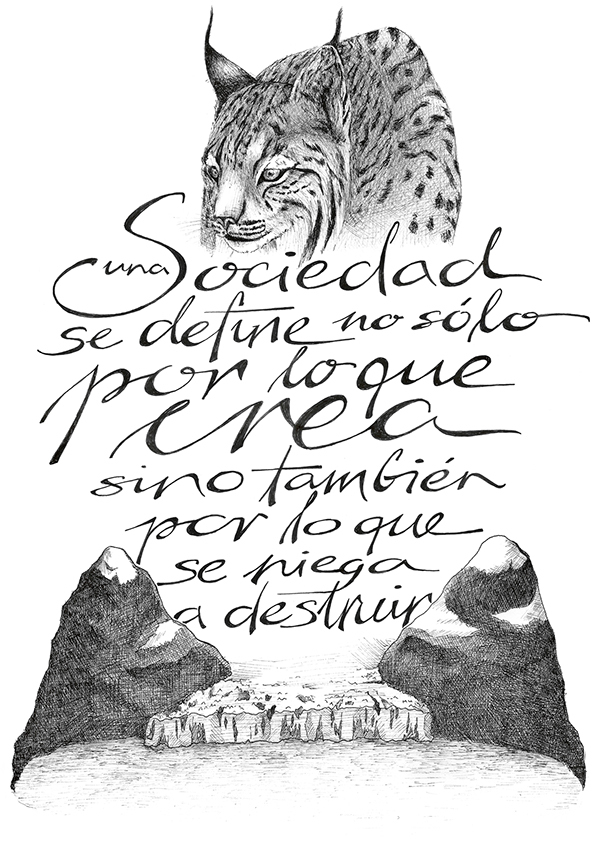 una Sociedad
se define no sólo
por lo que
crea
sino también
por lo que
se niega
a destruir